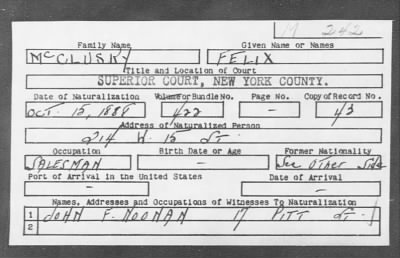 M 242
Family Name Given Name or Names
McCLUSKY FELIX
Title and Location of Court
SUPERIOR COURT, NEW YORK COUNTY.
Date of Naturalization Volume or Bundle No. Page No. Copy of Record No.
OCT. 15, 1888 422 - 43
Address of Naturalized Person
214 W. 15 ST.
Occupation Birth Date or Age Former Nationality
SALESMAN - See Other Side
Port of Arrival in the United States Date of Arrival
- -
Names, Addresses and Occupations of Witnesses To Naturalization
1 JOHN F. NOONAN 17 PITT ST.
2